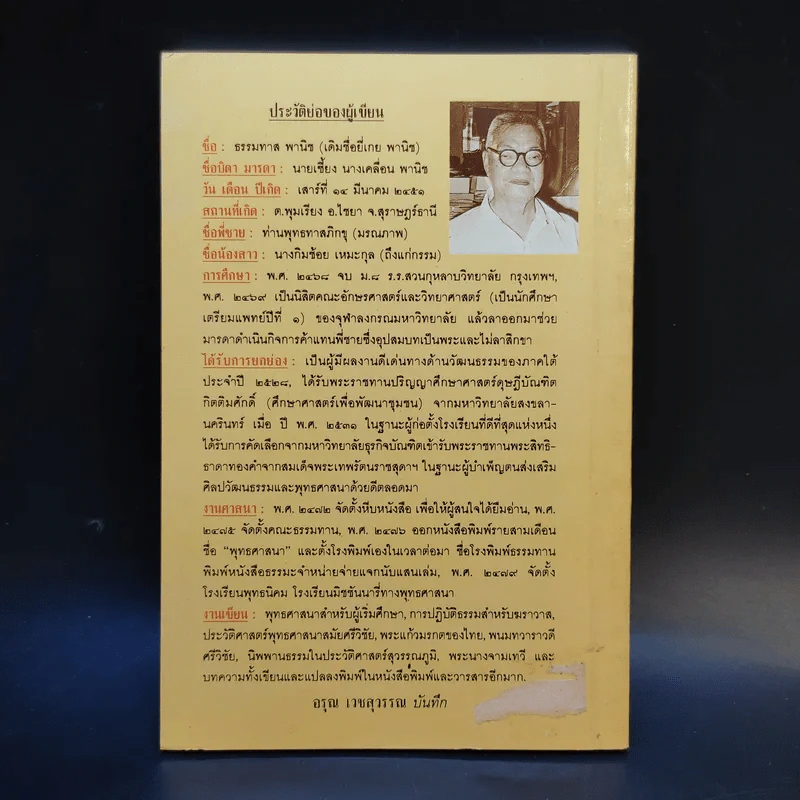 ประวัติย่อของผู้เขียน
ชื่อ : ธรรมทาส พานิช (เดิมชื่อยี่เกย พานิช)
ชื่อบิดา มารดา : นายเซี้ยง นางเคลื่อน พานิช
วัน เดือน ปีเกิด : เสาร์ที่ ๑๔ มีนาคม ๒๔๕๑
สถานที่เกิด : ต.พุมเรียง อ.ไชยา จ.สุราษฎร์ธานี
ชื่อพี่ชาย : ท่านพุทธทาสภิกขุ (มรณภาพ)
ชื่อน้องสาว : นางกิมซ้อย เหมะกุล (ถึงแก่กรรม)
การศึกษา : พ.ศ. ๒๔๖๘ จบ ม.๘ ร.ร.สวนกุหลาบวิทยาลัย กรุงเทพฯ,
พ.ศ. ๒๔๖๙ เป็นนิสิตคณะอักษรศาสตร์และวิทยาศาสตร์ (เป็นนักศึกษา
เตรียมแพทย์ปีที่ ๑) ของจุฬาลงกรณมหาวิทยาลัย แล้วลาออกมาช่วย
มารดาดำเนินกิจการค้าแทนพี่ชายซึ่งอุปสมบทเป็นพระและไม่ลาสิกขา
ได้รับการยกย่อง : เป็นผู้มีผลงานดีเด่นทางด้านวัฒนธรรมของภาคใต้
ประจำปี ๒๕๒๘, ได้รับพระราชทานปริญญาศึกษาศาสตร์ดุษฎีบัณฑิต
กิตติมศักดิ์ (ศึกษาศาสตร์เพื่อพัฒนาชุมชน) จากมหาวิทยาลัยสงขลา-
นครินทร์ เมื่อ ปี พ.ศ. ๒๕๓๑ ในฐานะผู้ก่อตั้งโรงเรียนที่ดีที่สุดแห่งหนึ่ง
ได้รับการคัดเลือกจากมหาวิทยาลัยธุรกิจบัณฑิตเข้ารับพระราชทานพระสิทธิ-
ธาดาทองคำจากสมเด็จพระเทพรัตนราชสุดาฯ ในฐานะผู้บำเพ็ญตนส่งเสริม
ศิลปวัฒนธรรมและพุทธศาสนาด้วยดีตลอดมา
งานศาสนา : พ.ศ. ๒๔๗๒ จัดตั้งหีบหนังสือ เพื่อให้ผู้สนใจได้ยืมอ่าน, พ.ศ.
๒๔๗๕ จัดตั้งคณะธรรมทาน, พ.ศ. ๒๔๗๖ ออกหนังสือพิมพ์รายสามเดือน
ชื่อ “พุทธศาสนา” และตั้งโรงพิมพ์เองในเวลาต่อมา ชื่อโรงพิมพ์ธรรมทาน
พิมพ์หนังสือธรรมะจำหน่ายจ่ายแจกนับแสนเล่ม, พ.ศ. ๒๔๗๙ จัดตั้ง
โรงเรียนพุทธนิคม โรงเรียนมิชชันนารีทางพุทธศาสนา
งานเขียน : พุทธศาสนาสำหรับผู้เริ่มศึกษา, การปฏิบัติธรรมสำหรับฆราวาส,
ประวัติศาสตร์พุทธศาสนาสมัยศรีวิชัย, พระแก้วมรกตของไทย, พนมทวาราวดี
ศรีวิชัย, นิพพานธรรมในประวัติศาสตร์สุวรรณภูมิ, พระนางจามเทวี และ
บทความทั้งเขียนและแปลลงพิมพ์ในหนังสือพิมพ์และวารสารอีกมาก.
อรุณ เวชสุวรรณ บันทึก